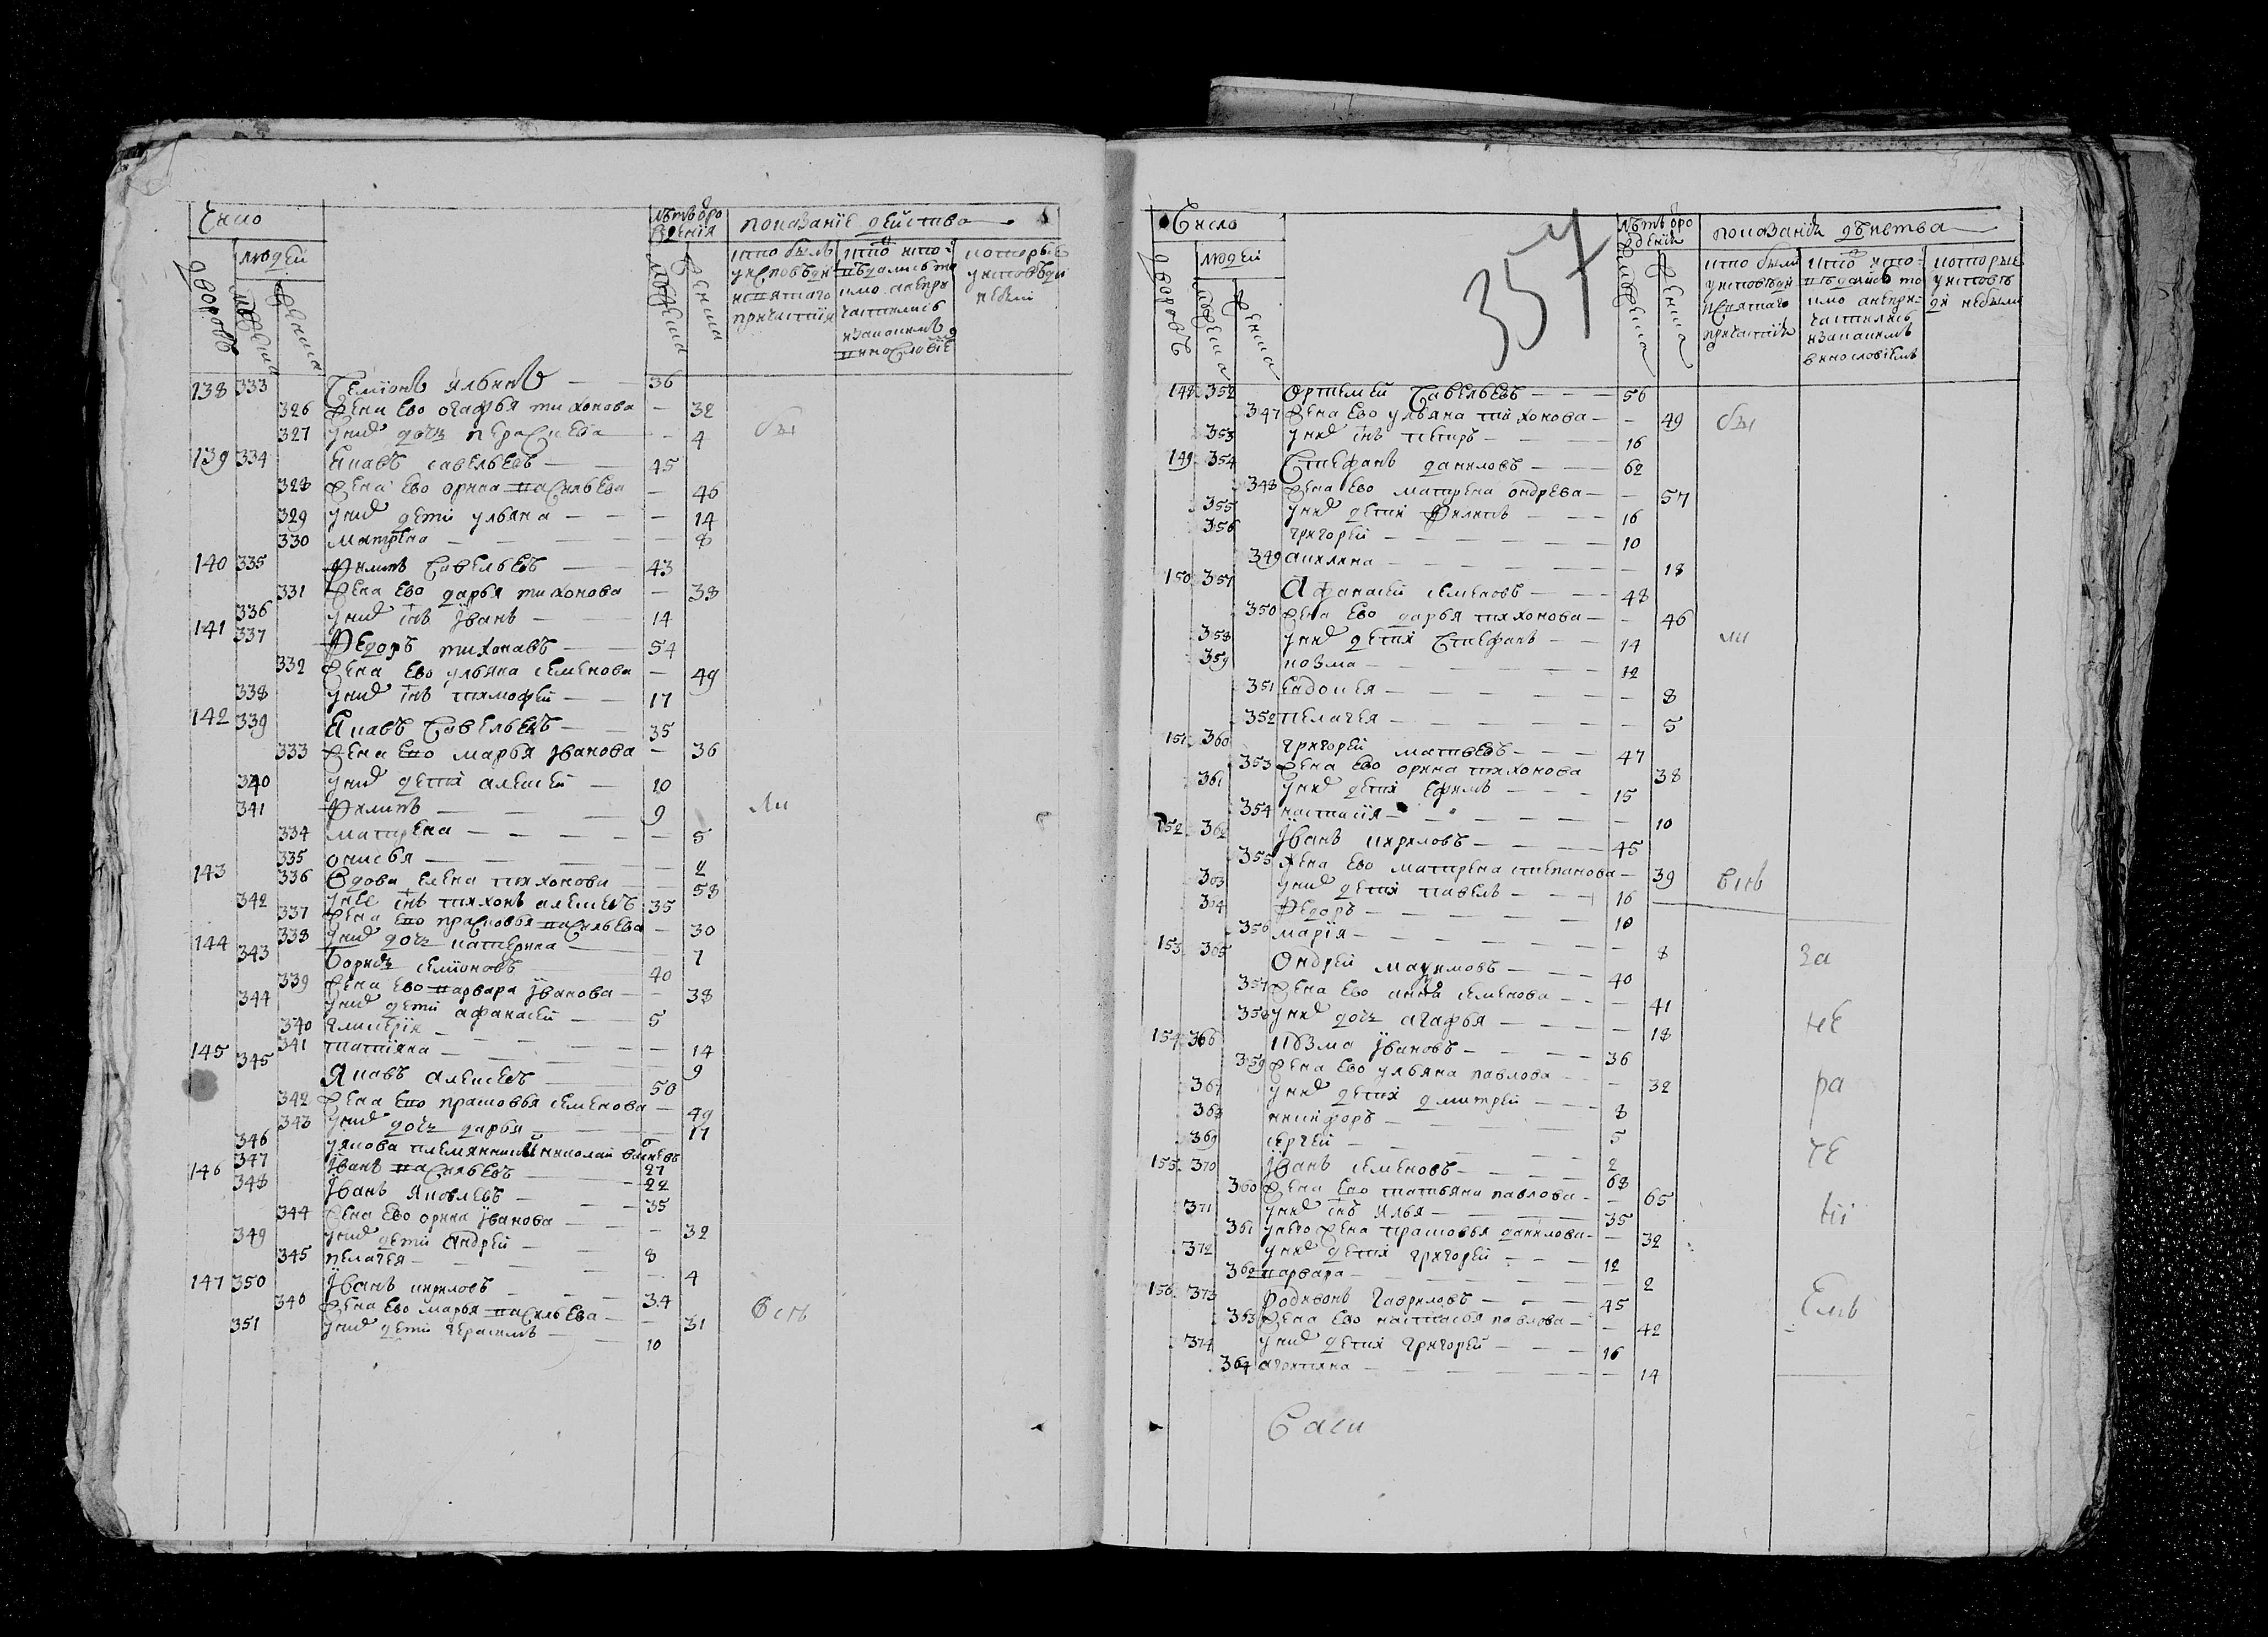 Число
людей
дворовъ
мужеска
женска
лѣтъ о рожденія
мужеска
женска
показаніе действа
кто былъ у исповѣди и святаго причастия
кто исповѣдались токмо а не причастились и за какимъ винословіе
которые у исповѣди не были
138 333 Семионъ Ильинъ — 36
326 жена ево огафья тихонова — 32
327 у них дочь параскева — 4
бы
139 334 Яковъ савельевъ — 45
328 жена ево орина васильева — 46
329 у них дети ульяна — 14
330 матрена — 8
140 335 Филипъ Савельевъ — 43
331 жена ево дарья тихонова — 38
336 у них снъ Іванъ — 14
141 337 Федоръ тихоновъ — 54
332 жена ево ульяна семенова — 49
338 у них снъ тимофей — 17
142 339 Яковъ Савельевъ — 35
333 жена ево марья Іванова — 36
340 у них дети алексей — 10
341 Филипъ — 9
ли
334 матрена — 5
335 онисья — 2
143 336 Вдова елена тихонова — 58
342 у нее снъ тихонъ алексеевъ 35
337 жена ево прасковья василъева — 30
338 у них дочь катерина — 1
144 343 Борисъ семионовъ 40
339 жена ево варвара Іванова — 38
344 у них дети афанасей — 5
340 гликерия — 14
341 татияна — 9
145 345 Яковъ алексеевъ — 50
342 жена ево прасковья семенова — 49
343 у них дочь дарья — 17
346 Якова племянники николай
347 Іванъ василъевъ 22
146 348 Іванъ Яковлевъ — 35
344 жена ево орина Іванова — 32
349 у них дети Андрей — 8
345 пелагея — 4
147 350 Іванъ кириловъ — 34
346 жена ево марья василъева — 31
всѣ
351 у них дети герасимъ — 10
357
Число
людей
дворовъ
мужеска
женска
лѣтъ о рожденія
мужеска
женска
показаніе дѣиства
кто были у исповѣди и святаго причастія
кто исповѣдались токмо а не причастились и за какимъ винословіемъ
которые у исповѣди не были
148 352 Ортемей Савельевъ — 56
347 жена ево ульяна тихонова — 49
бы
353 у них снъ петръ — 16
149 354 Стефанъ даниловъ — 62
348 жена ево матрена ондрева — 57
355 у них дети Филипъ — 16
356 григорей — 10
349 акилина — 18
150 357 Афанасей семеновъ — 48
350 жена ево дарья тихонова — 46
358 у них дети Стефанъ — 14
ли
359 козма — 12
351 евдокея — 8
352 пелагея — 5
151 360 григорей матвеевъ — 47
353 жена ево орина тихонова 38
361 у них дети Ефимъ — 15
354 настасия — 10
152 362 Іванъ кириловъ — 45
355 жена ево матрена степанова — 39
всѣ
363 у них дети павелъ — 16
364 Федоръ — 10
356 марія — 8
153 365 Ондрей маѯимовъ — 40
за
357 жена ево анна семенова — 41
358 у них дочь агафья — 18
не
154 366 Козма Івановъ — 36
359 жена ево ульяна павлова — 32
ра
367 у них дети дмитрей — 8
368 никифоръ — 5
369 сергей — 2
че
155 370 Іванъ семеновъ — 68
360 жена ево татьяна павлова — 65
371 у них снъ Илья — 35
ні
361 у него жена прасковья данилова — 32
372 у них дети григорей — 12
362 варвара — 2
156 373 родивонъ гавриловъ — 45
емъ
363 жена ево настасья павлова — 42
374 у них дети григорей — 16
364 огропина — 14